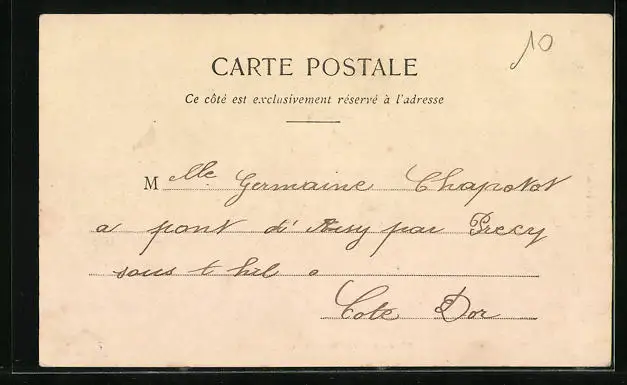 10
CARTE POSTALE
Ce côté est exclusivement réservé à l'adresse
Melle Germaine Chapotot
a pont d'Aisy par Precy
sous t hil o
Cote Dor